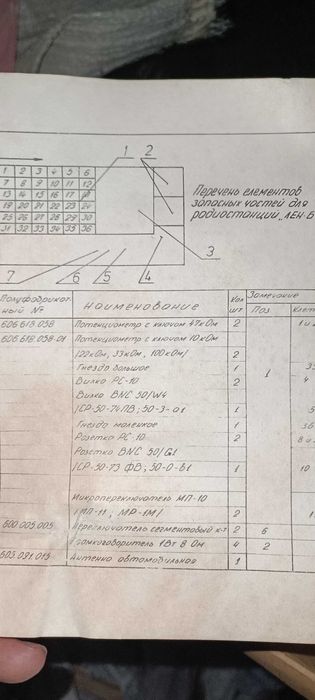 1 2 3 4 5 6
7 8 9 10 11 12
13 14 15 16 17 18
19 20 21 22 23 24
25 26 27 28 29 30
31 32 33 34 35 36
1 2
3
7 6 5 4
Перечень елементов
запасных частей для
радиостанций „ЛЕН-Б
Полуфабрикат-
ный №
Наименование
Кол
шт
Замечание
Поз
Клет
606 618 058 Потенциометр с ключом 47кОм 2
606 618 058-01 Потенциометр с ключом 10кОм
/22кОм, 33кОм, 100кОм/ 2
Гнездо большое 1
Вилка РС-10 2 1 4
Вилка BNC 50/W4
/СР-50-74ПВ; 50-3-01 1
Гнездо маленкое 1
Розетка РС-10 2
Розетка BNC 50/G1
/СР-50-73 ФВ; 50-0-61 1 10
Микропереключатель МП-10
/МП-11; МР-1М/ 2
600 005 005 Переключатель сегментовый к-т 2 6
Громкоговоритель 1Вт 8 Ом 4 2
603 091 015 Антенна автомобильная 1